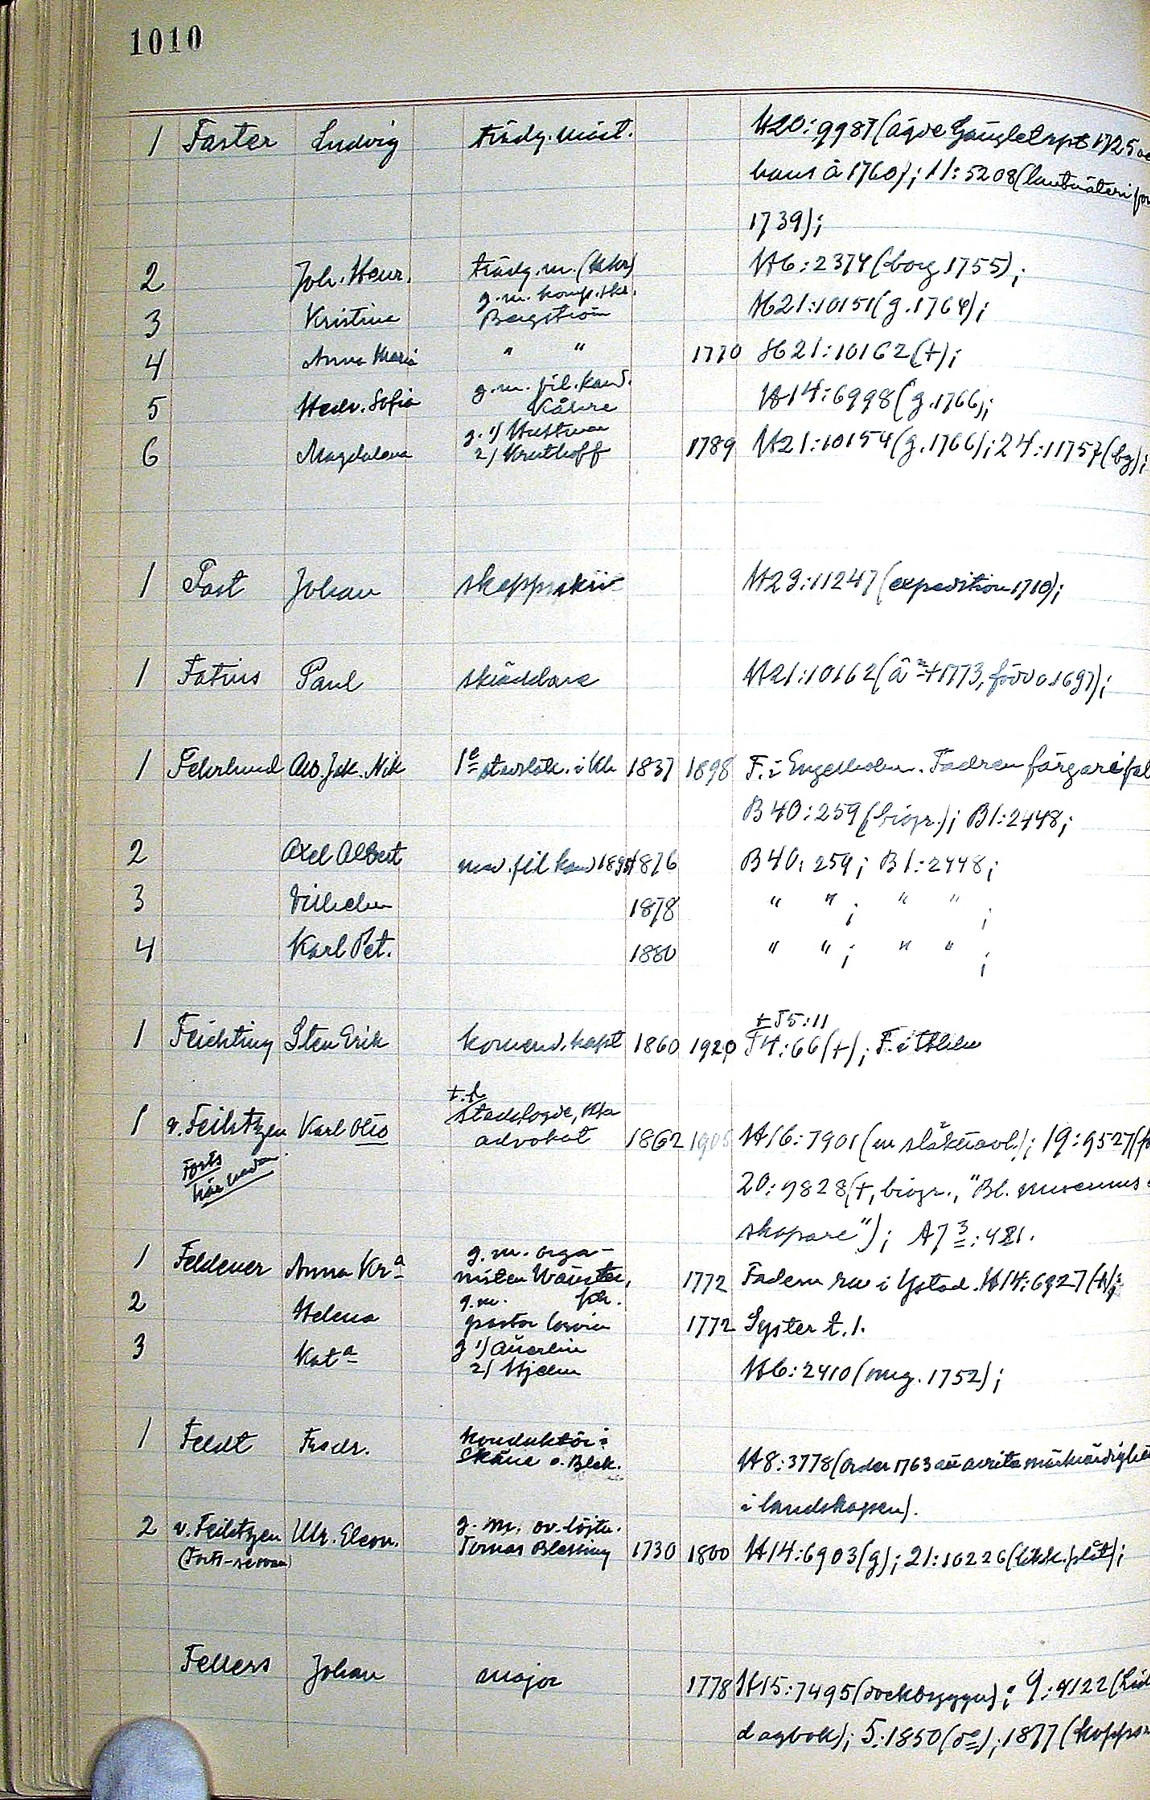 1010
1 Faster Ludvig trädg. mäst. H20:9987 (ägde Gänglet 1725
hans å 1760); 11:5208 (lantmäteri
1739);
2 Joh. Henr. trädg. m. (khr) H6:2374 (borg 1755);
g. m. komp. skr.
3 Kristina Bergström H21:10151 (g. 1764);
4 Anna Maria " " 1770 H21:10162 (+);
g. m. fil. kand.
5 Hedv. Sofia Kåhre H14:6998 (g. 1766);
g. 1) Hultman
6 Magdalena 2) Kruthoff 1789 H21:10154 (g. 1766); 24:11757 (bg);
1 Fast Johan skeppsskriv H23:11247 (expedition 1710);
1 Fatius Paul skräddare H21:10162 (+1773, född 1697);
1 Fehrlund Alb. Jak. Nik 1e stadsläk. i Kk 1837 1898 F. i Engelholm. Fadren färgarefab
B40:259 (biogr.); B1:2448;
2 Axel Albert med. fil kand 1895 1876 B40:259; B1:2448;
3 Vilhelm 1878 " " ; " " ;
4 Karl Pet. 1880 " " ; " " ;
+ T5:11
1 Feichting Sten Erik komend. kapt 1860 1920 T4:66 (+); F. i Sthlm
t. f.
stadsfogde, Kka
1 v. Feilitzen Karl Otto advokat 1862 H16:7901 (m släktavl.); 19:9527
Forts här nedan
20:9828 (+, biogr., "Bl. museums
skapare"); A7 3:421.
g. m. orga-
1 Feldener Anna Kr:a nisten Wänster, 1772 Fadern rm i Ystad. H14:6927 (+);
g. m. fkr.
2 Helena pastor Corvin 1772 Syster t. 1.
g 1) Auerlin
3 Kat:a 2) Hjelm H6:2410 (omg. 1752);
1 Feldt Fredr. konduktör i
Skåne o. Blek. H8:3778 (order 1763 att avrita märkvärdighet
i landskapen).
g. m. öv. löjtn.
2 v. Feilitzen Ulr. Eleon. Tomas Blessing 1730 1800 H14:6903 (g); 21:10226 (likk. plåt);
(Forts. fr ovan)
Fellers Johan major 1778 H15:7495 (dockbyggn); 9:4122
dagbok); 5:1850 (do); 1877 (koppar